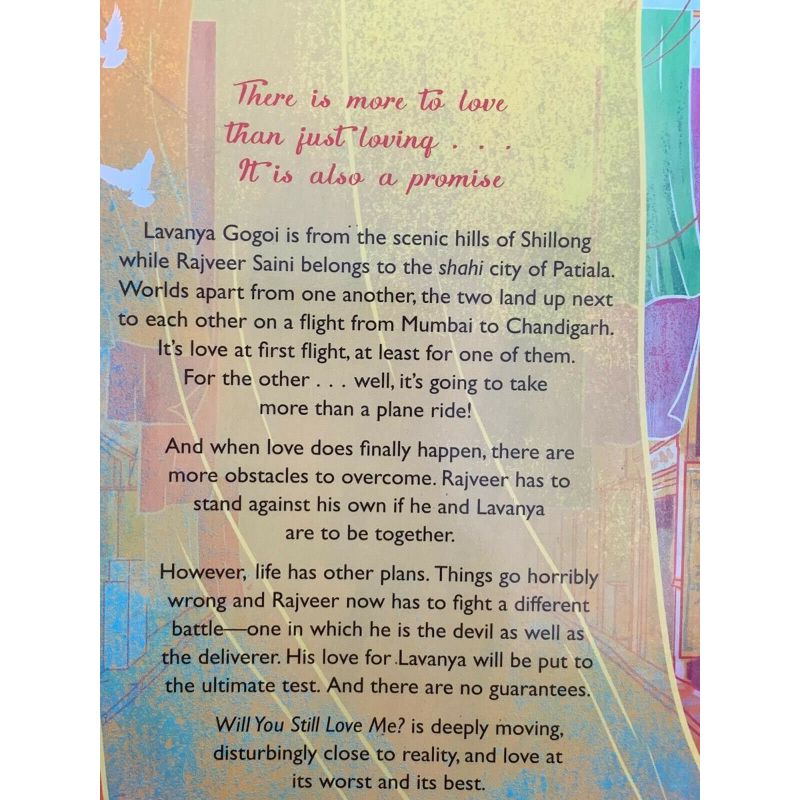 There is more to love
than just loving . . .
It is also a promise
Lavanya Gogoi is from the scenic hills of Shillong
while Rajveer Saini belongs to the shahi city of Patiala.
Worlds apart from one another, the two land up next
to each other on a flight from Mumbai to Chandigarh.
It's love at first flight, at least for one of them.
For the other . . . well, it's going to take
more than a plane ride!
And when love does finally happen, there are
more obstacles to overcome. Rajveer has to
stand against his own if he and Lavanya
are to be together.
However, life has other plans. Things go horribly
wrong and Rajveer now has to fight a different
battle—one in which he is the devil as well as
the deliverer. His love for Lavanya will be put to
the ultimate test. And there are no guarantees.
Will You Still Love Me? is deeply moving,
disturbingly close to reality, and love at
its worst and its best.